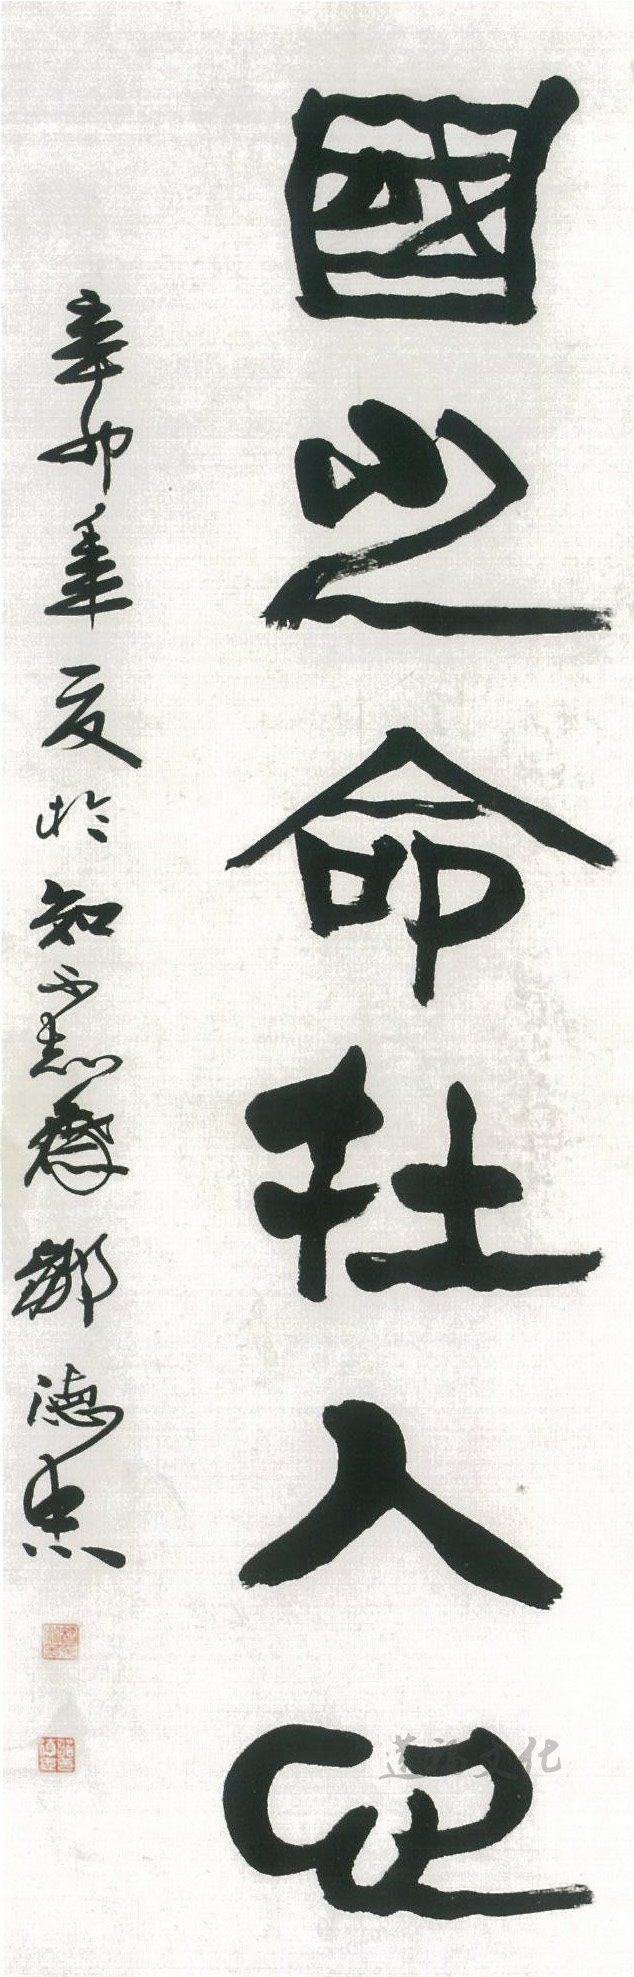 國之命在人心
辛卯年夏於知不齋鄒德忠
文化